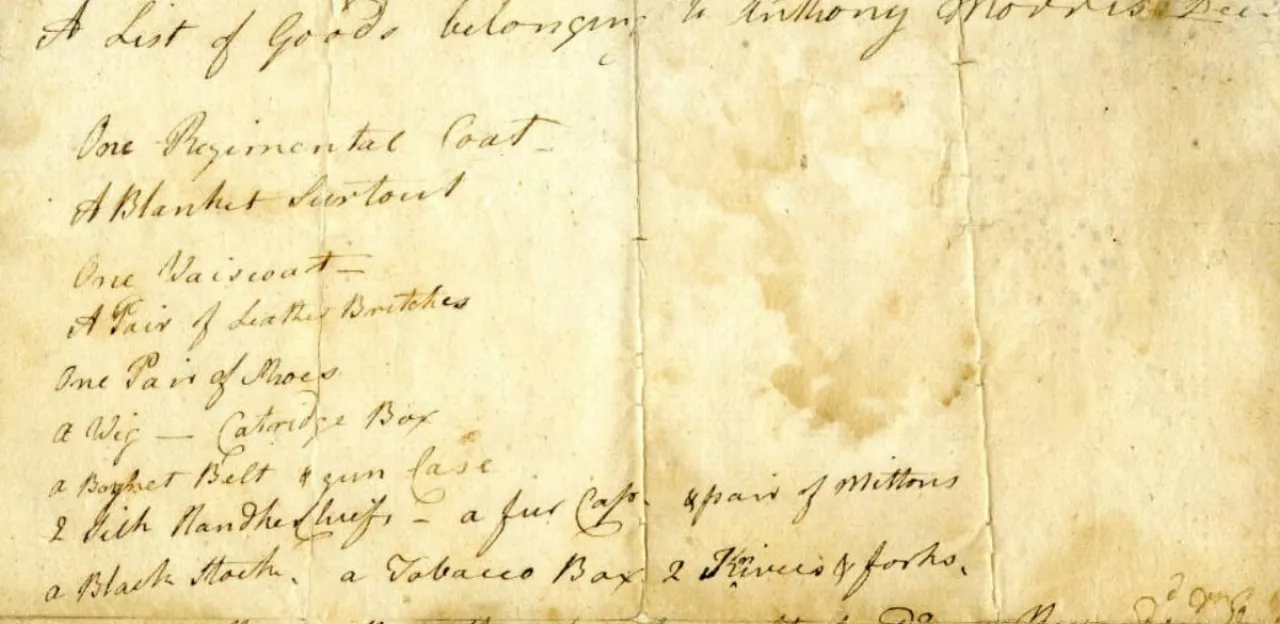 A List of Goods belonging to Anthony Morris
One Regimental Coat –
A Blanket Surtout
One Vaiscoat –
A Pair of Leather Britches
One Pair of Shoes
a Wig — Catridge Box
a Baynet Belt & gun Case
2 Silk Handkerchiefs – a fur Cap. & pair of Mittons
a Black Stock. a Tobacco Box 2 Knives & forks.